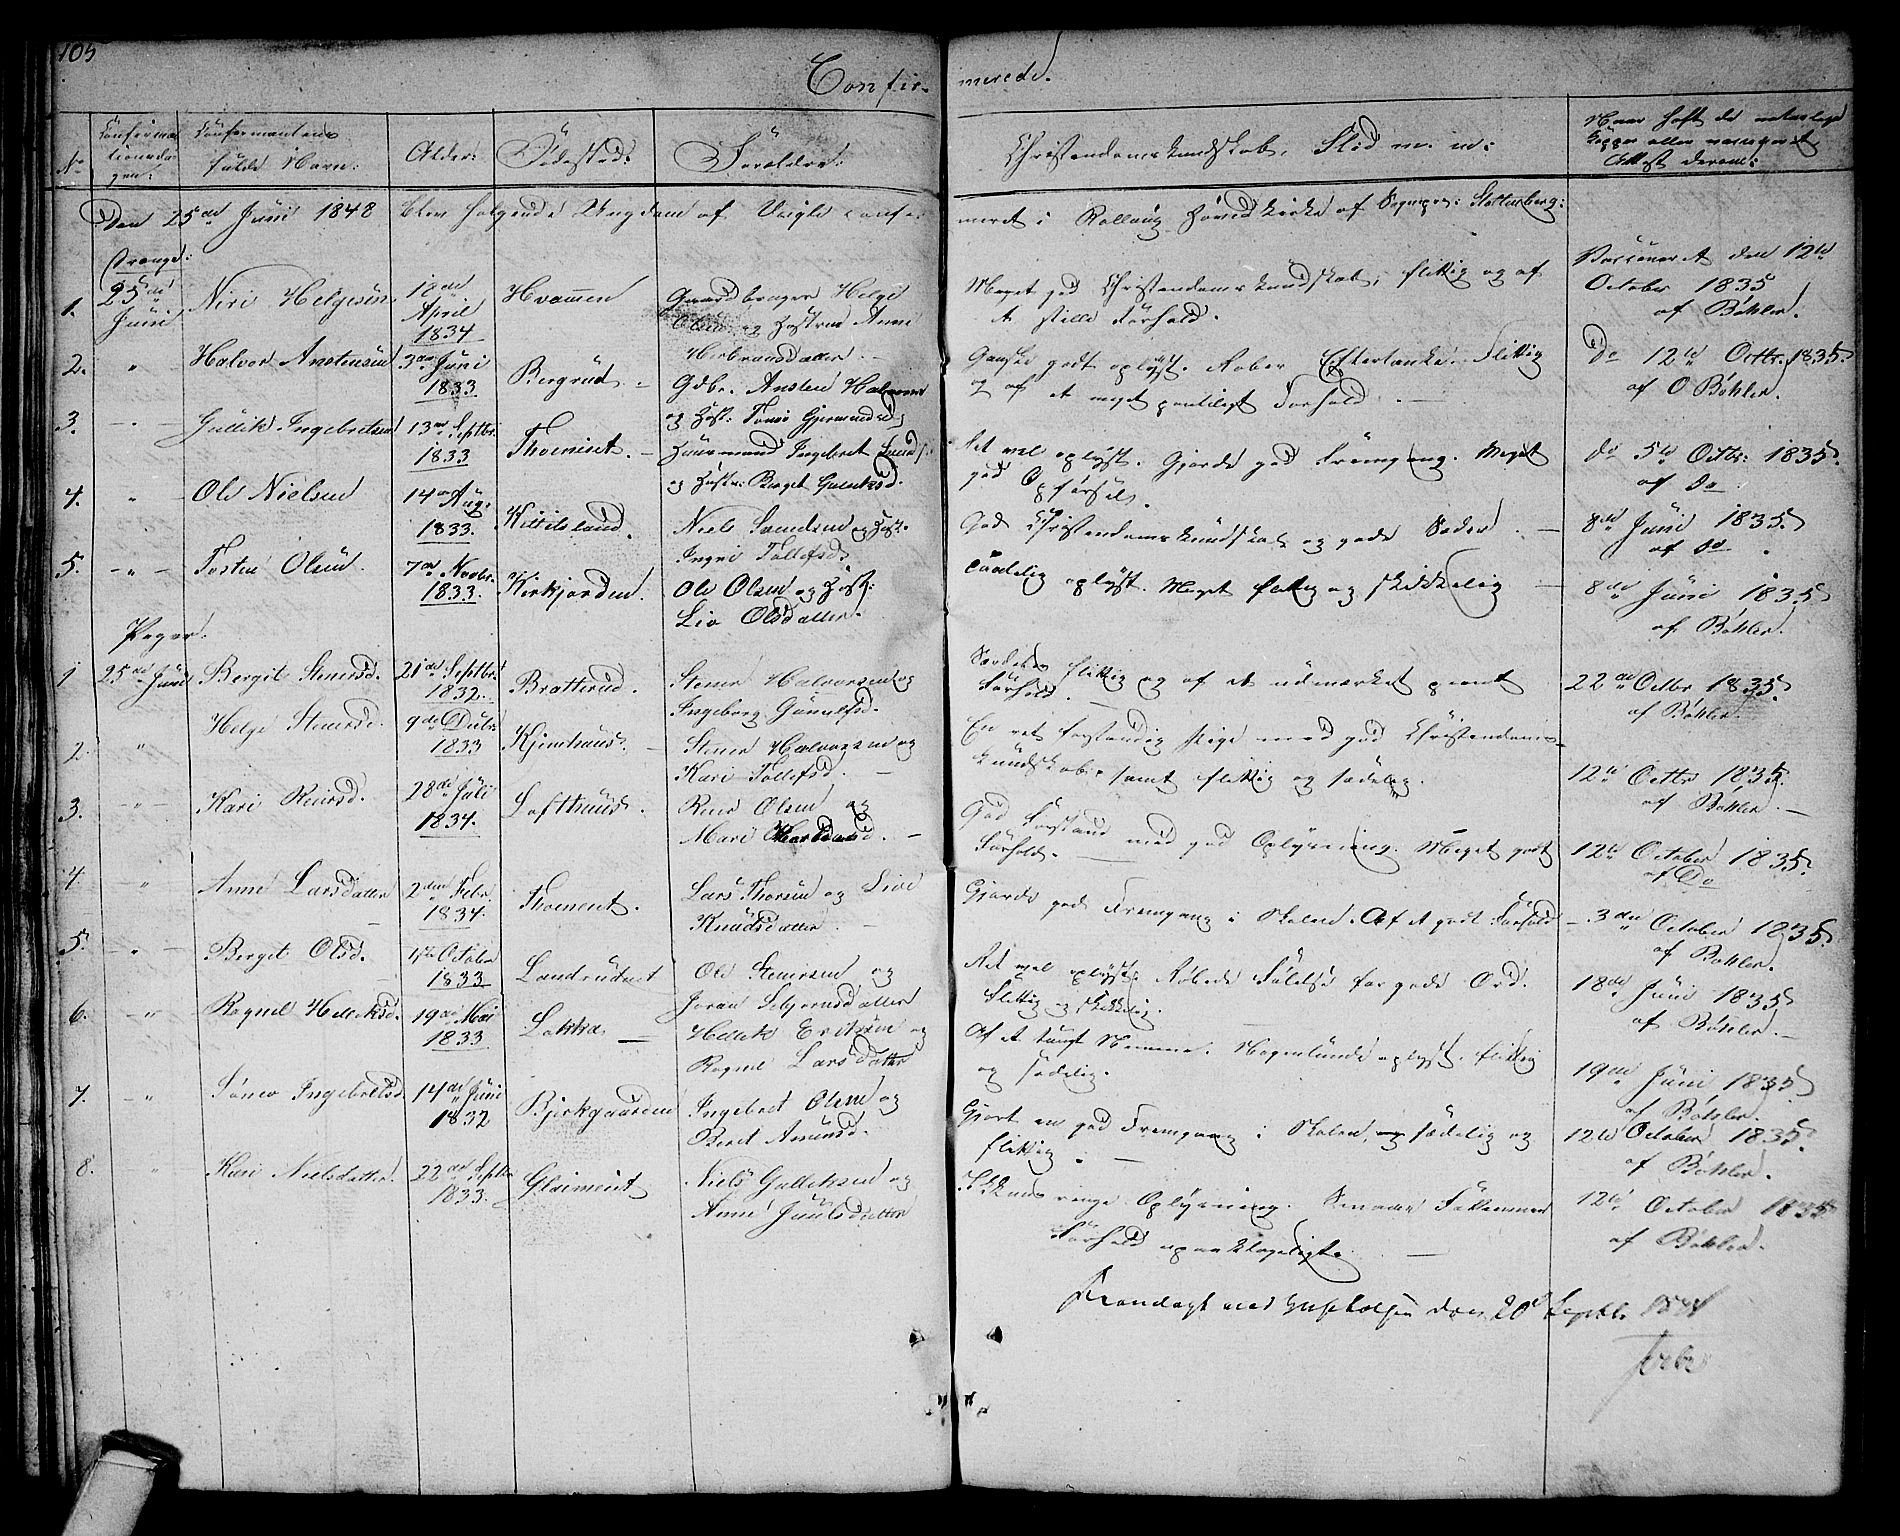 105
Confir- merede.
No
Confirma-
tionsda-
gen:
Confirmantens
fulde Navn:
Alder:
Fødested:
Forældre:
Christendomskundskab, Flid m. m:
Naar havt de naturlige
Kopper eller vaccineret
Attest derom:
Den 25de Juni 1848 blev følgende Ungdom af Vegli confir-
meret i Rollaug Hovedkirke af Sognepr: Stoltenberg:
Drenge:
1. 25de Juni Niri Helgesøn 12de April 1834 Hvammen Gaardbruger Helge
Olsen og Hustrue Anne
Herbransdatter.
Meget god Christendomskundskab, flittig og af
et stille Forhold.
Vaccineret den 12te
October 1835
af Bøhler.
2. " Halvor Anstensøn 3die Juni 1833 Bergrud. Gdbr. Ansten Halvorsen
og Hust: Tone Gjermundsd:
Ganske godt oplyst. Flittig
og af et meget Forhold.
Do 12te Octbr. 1835.
af O Bøhler.
3. " Gullik Ingebretsen 13de Septbr. 1833 Thoeniet. Huusmand Ingebret
og Hustr: Berget Gulliksd.
Ret vel oplyst. Gjorde god Fremgang. Meget
god Opførsel.
do 5te Octbr: 1835.
af do
4. " Ole Nielsen 14de Aug: 1833. Kittilsland. Niels Svendsen og Hust:
Ingri Tollefsd:
God Christendomskundskab og gode Sæder.
8de Juni 1835.
af do
5. " Tosten Olsen. 7de Novbr. 1833. Kirkjorden. Ole Olsen og Hust:
Liv Olsdatter.
oplyst. Meget flittig og skikkelig
8de Juni 1835
af Bøhler.
Piger:
1 25de Juni Bergit Stenersd. 21de Septbr. 1832. Bratterud. Stener Halvorsen og
Ingeborg Gunulfsd.
Særdeles flittig og af et udmærket pænt
Forhold.
22de Octbr 1835.
af Bøhler.
2. " Helge Stenersd. 9de 1833 Kjemhuus. Stener Halvorsen og
Kari Tollefsd.
En ret forstandig Pige med god Christendoms-
kundskab, samt flittig og sædelig.
12te Octbr 1835.
af Bøhler.
3. " Kari Reiersd. 28de Juli 1834. Lofthuus. Reier Olsen og
Mari
God Forstand med god Oplysning. Meget godt
Forhold.
12te October 1835.
af Do
4. " Anne Larsdatter 2den Febr 1834. Thoenent. Lars Thorsen og Live
Knudsdatter.
Gjorde god Fremgang i Skolen. Af et godt Forhold
3die October 1835.
af Bøhler.
5. " Bergit Olsd. 4de Octobr 1833 Landrudnet Ole Stenersen og
Joran
Ret vel oplyst. Følelse for gode Ord.
Flittig og skikkelig.
18de Juni 1835
af Bøhler.
6. " Ragnil Helleksd. 19de Mai 1833 Løkka Hellek Eriksøn og
Ragnil Larsdatter
Af et tungt Nemme. Nogenlunde oplyst, flittig
og sædelig.
19de Juni 1835
af Bøhler.
7. " Sønev Ingebretsd. 14de Juni 1832 Bjerkgaarden Ingebret Olsen og
Berit Amundsd.
Gjort en god Fremgang i Skolen, sædelig og
flittig.
12te October 1835
af Bøhler.
8. " Kari Nielsdatter. 22de Septbr 1833. Glaiment Niels Gulliksen og
Anne Juulsdatter
Ikkuns ringe Oplysning.
Forhold upaaklageligt.
12te October 1835
af Bøhler.
den 20de Septbr.